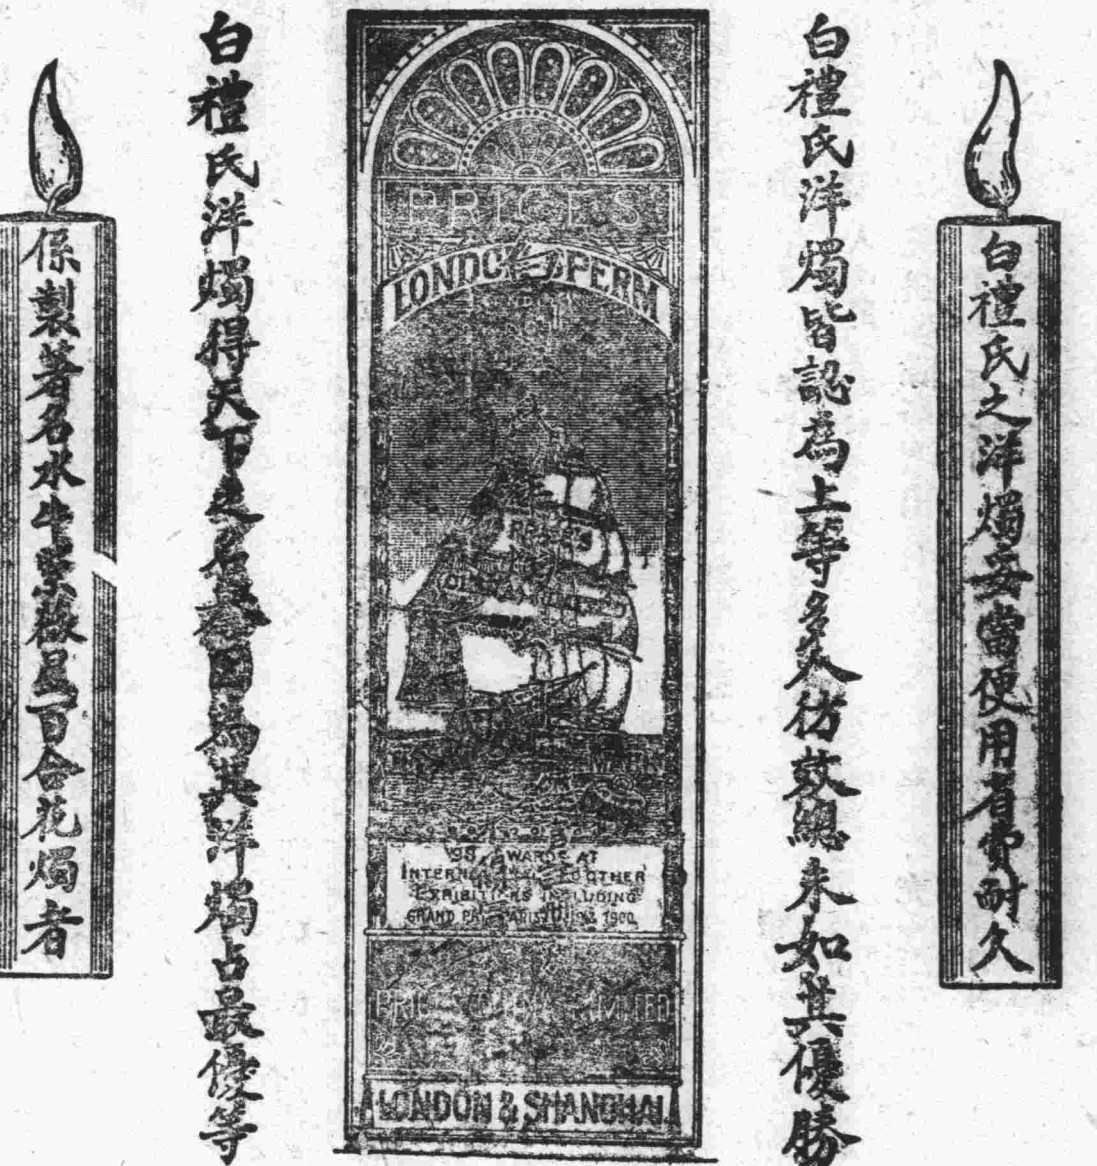 白禮氏之洋燭妥當便用省費耐久
白禮氏洋燭皆認為上等多人仿效總未如其優勝
PRICE'S
LONDON SPERM
PRICE'S
MARK
AWARDS AT
INTERNATIONAL & OTHER
EXHIBITIONS INCLUDING
GRAND PRIX PARIS 1900
LIMITED
LONDON & SHANGHAI
白禮氏洋燭得天下之名譽因為其洋燭占最優等
係製著名水牛百合花燭者